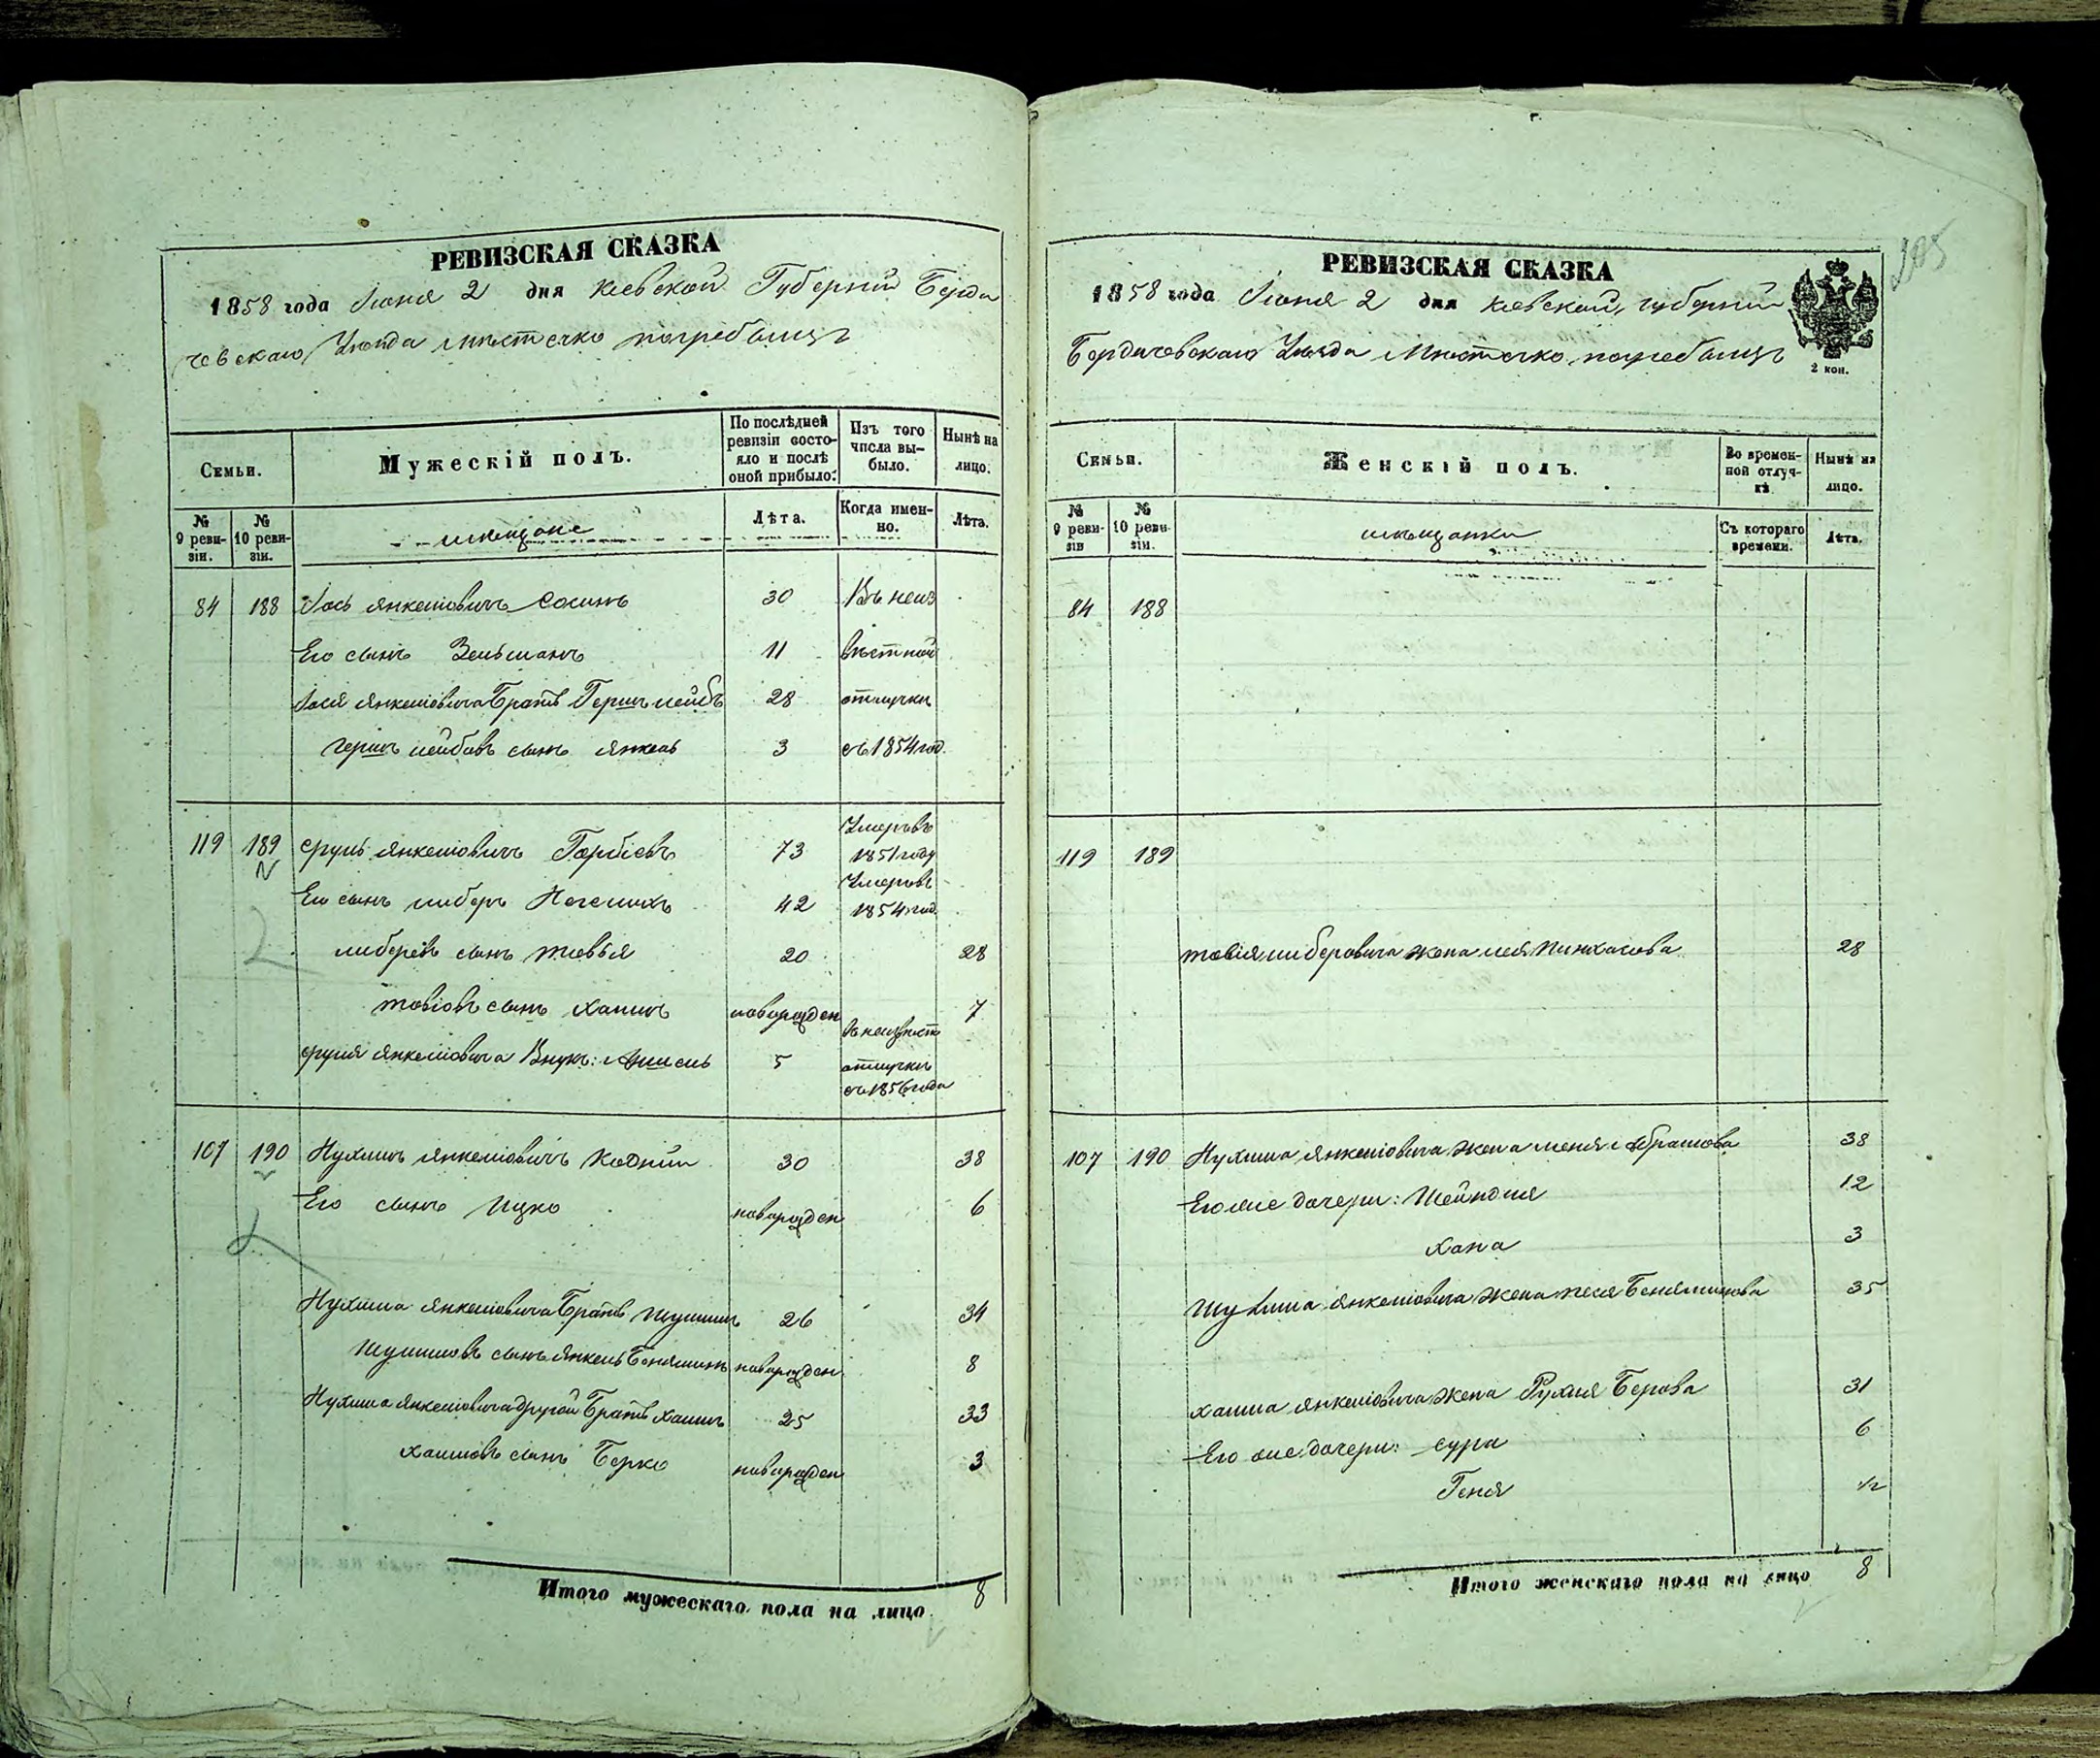 РЕВИЗСКАЯ СКАЗКА
1858 года Июня 2 дня Киевской Губернии Берди
чевскаго Уѣзда мѣстечко погребищъ
Семьи.
Мужескій полъ.
По послѣдней ревизіи состояло и послѣ оной прибыло.
Изъ того числа выбыло.
Нынѣ на лицо.
№ 9 ревизіи.
№ 10 ревизіи.
мѣщане
Лѣта.
Когда именно.
Лѣта.
84 188 Іось Янкелiовичъ 30 Въ неиз
Его сынъ Зельманъ 11 вѣстной
Іося Янкеліовича Братъ Гершъ лейбъ 28 отлучкѣ
Гершъ лейбовъ сынъ Янкель 3 съ 1854 год.
119 189 Сруль Янкеліовичъ 73 Умеръ въ 1851 году
Его сынъ либеръ 42 Умеръ въ 1854 год.
либеровъ сынъ товья 20 28
товіовъ сынъ хаимъ новорожден 7
Сруля Янкеліовича Внукъ: Аншель 5 въ неизвѣст отлучкѣ съ 1856 года
107 190 Нухимъ Янкеліовичъ 30 38
Его сынъ Ицко новорожден 6
Нухима Янкеліовича Братъ Шулимъ 26 34
Шулимовъ сынъ Янкель Беняминъ новорожден 8
Нухима Янкеліовича другой Братъ хаимъ 25 33
хаимовъ сынъ Берко новорожден 3
Итого мужескаго пола на лицо 8
РЕВИЗСКАЯ СКАЗКА
1858 года Июня 2 дня Киевской губернии
Бердичевскаго Уѣзда Мѣстечко погребищъ
2 коп.
Семьи.
Женскій полъ.
Во временной отлучкѣ
Нынѣ на лицо.
№ 9 ревизіи
№ 10 ревизіи.
мѣщанки
Съ котораго времени.
Лѣта.
84 188
119 189
товія либеровича жена лея Пинхасова 28
107 190 Нухима Янкеліовича жена Абрамова 38
Его же дочери: Шейндля 12
хана 3
Шулима Янкеліовича жена песя Беняминова 35
хаима Янкеліовича жена Рухля Берова 31
Его же дочери: сура 6
Геня 1/2
Итого женскаго пола на лицо 8